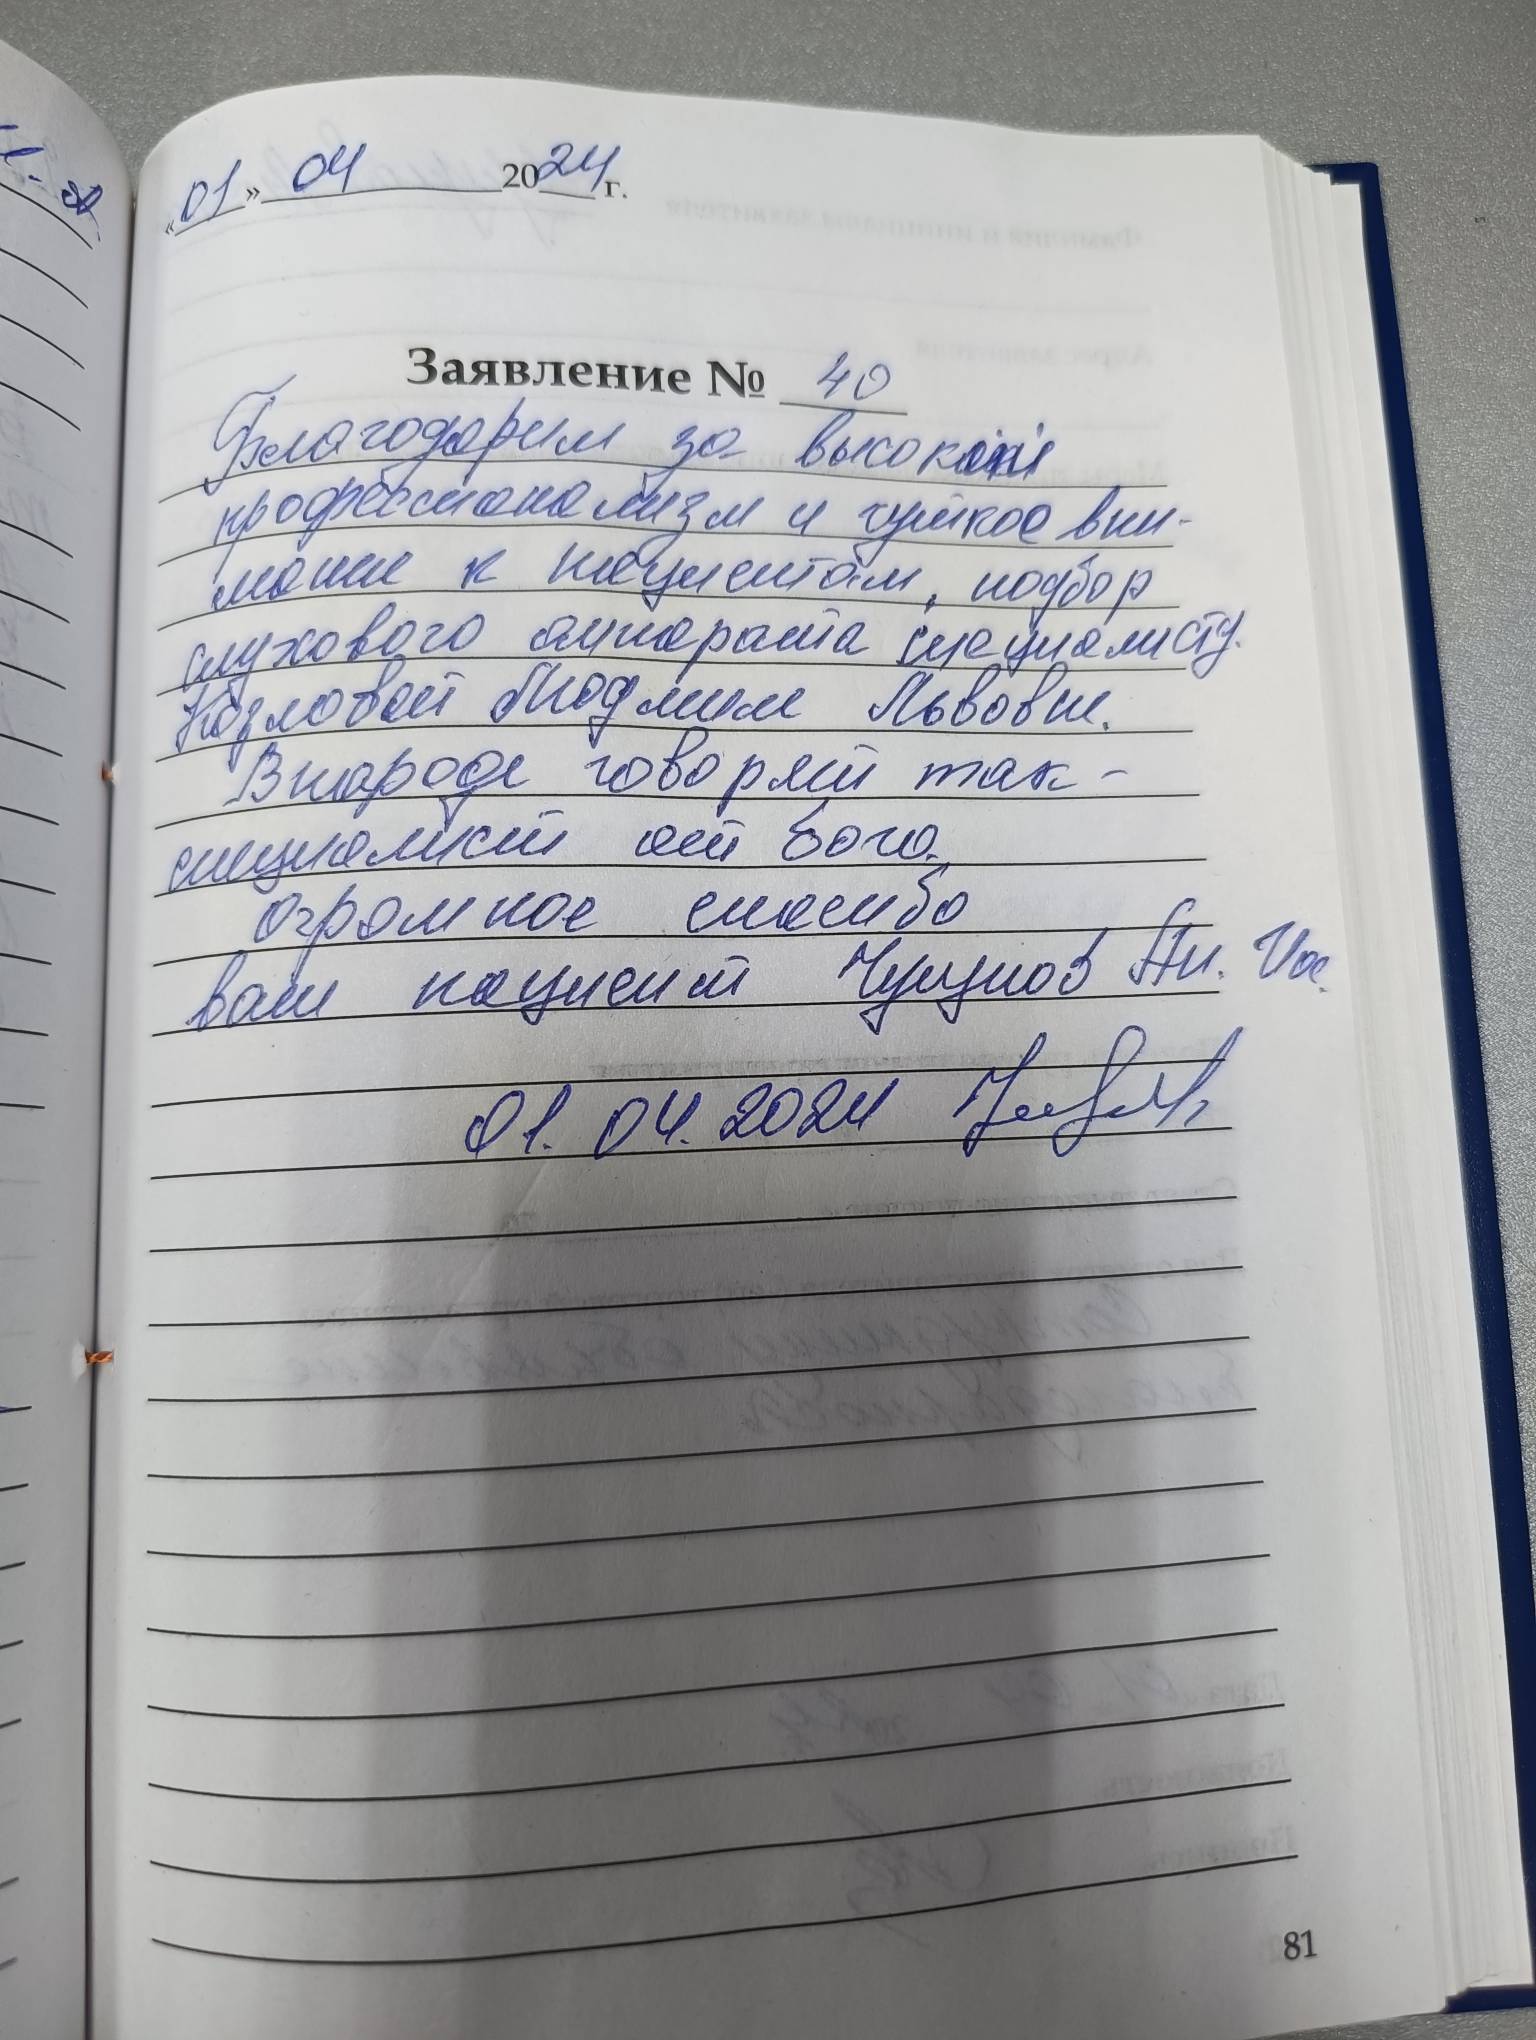 «01» 04 2024 г.
Заявление № 40
Благодарим за высокий
профессионализм и чуткое вни-
мание к пациентам, подбор
слухового аппарата специалисту.
Козловой Людмиле Львовне.
В народе говорят так -
специалист от бога.
огромное спасибо
ваш пациент Ан. Вас.
01.04.2024
81